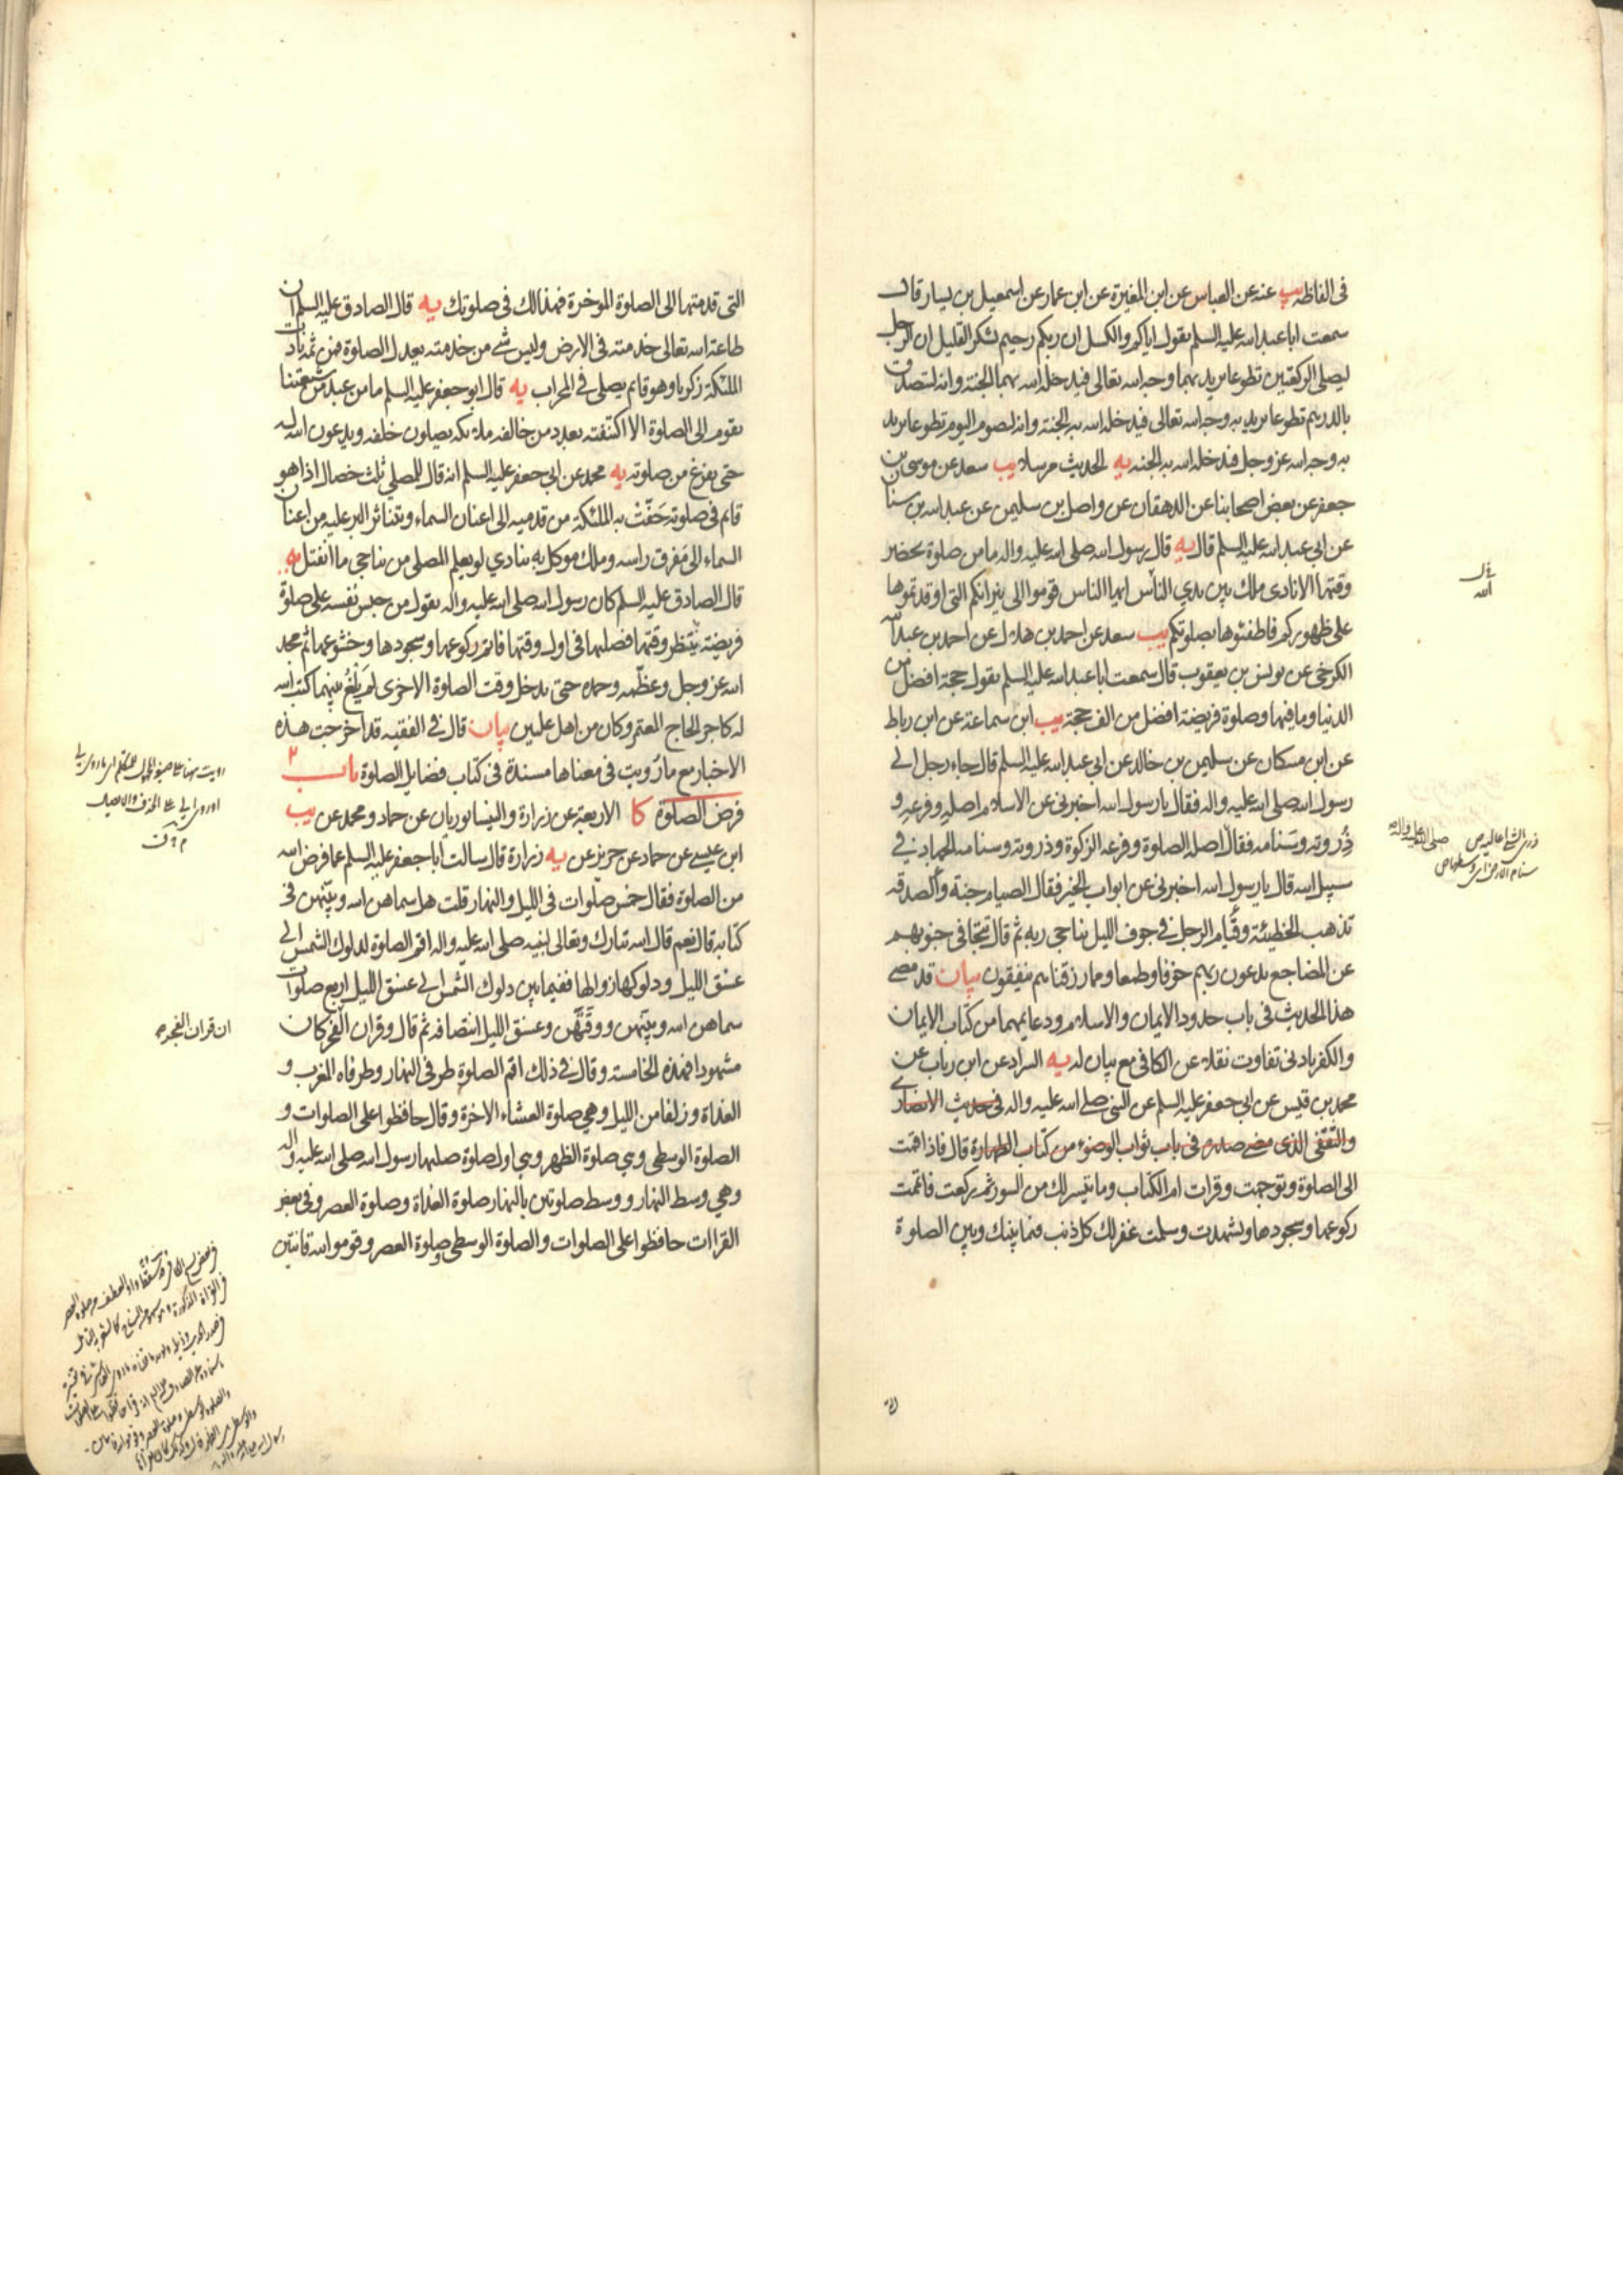 في الفاظه يب عنه عن العباس عن ابن المغيرة عن ابن عمار عن اسمعيل بن يسار قال
سمعت ابا عبد الله عليه السلم يقول اياكم والكسل ان ربكم رحيم يشكر القليل ان الرجل
ليصلي الركعتين تطوعا يريد بهما وجه الله تعالى فيدخله الله بهما الجنة وانه ليتصدق
بالدرهم تطوعا يريد به وجه الله تعالى فيدخله الله به الجنة وانه ليصوم اليوم تطوعا يريد
به وجه الله عز وجل فيدخله الله به الجنه يه الحديث مرسلا يب سعد عن موسى بن
جعفر عن بعض اصحابنا عن الدهقان عن واصل بن سليمن عن عبد الله بن سنان
عن ابي عبد الله عليه السلم قال يه قال رسول الله صلى الله عليه واله ما من صلوة يحضر
وقتها الا نادى ملك بين يدي الناس ايها الناس قوموا الى نيرانكم التي اوقدتموها
على ظهوركم فاطفئوها بصلوتكم يب سعد عن احمد بن هلال عن احمد بن عبد الله
الكرخي عن يونس بن يعقوب قال سمعت ابا عبد الله عليه السلم يقول حجة افضل من
الدنيا وما فيها وصلوة فريضة افضل من الف حجة يب ابن سماعة عن ابن رباط
عن ابن مسكان عن سليمن بن خالد عن ابي عبد الله عليه السلم قال جاء رجل الى
رسول الله صلى الله عليه واله فقال يا رسول الله اخبرني عن الاسلام اصله وفرعه و
ذروته وسنامه فقال اصله الصلوة وفرعه الزكوة وذروته وسنامه الجهاد في
سبيل الله قال يا رسول الله اخبرني عن ابواب الخير فقال الصيام جنة والصدقه
تذهب الخطيئة وقيام الرجل في جوف الليل يناجي ربه ثم قال تتجافى جنوبهم
عن المضاجع يدعون ربهم خوفا وطمعا ومما رزقناهم ينفقون بيان قد مضى
هذا الحديث في باب حدود الايمان والاسلام ودعايمهما من كتاب الايمان
والكفر بادنى تفاوت نقلا عن الكافي مع بيان له يه السراد عن ابن رباب عن
محمد بن قيس عن ابي جعفر عليه السلم عن النبي صلى الله عليه واله في حديث الانصاري
والثقفي الذي مضى صدره في باب ثواب الوضوء من كتاب الطهارة قال فاذا قمت
الى الصلوة وتوجهت وقرات ام الكتاب وما تيسر لك من السور ثم ركعت فاتممت
ركوعها وسجودها وتشهدت وسلمت غفر لك كل ذنب فيما بينك وبين الصلوة
التي قدمتها الى الصلوة الموخرة فهذا لك في صلوتك يه قال الصادق عليه السلم ان
طاعة الله تعالى خدمته في الارض وليس شي من خدمته يعدل الصلوة فمن ثم نادت
الملئكة زكريا وهو قايم يصلي في المحراب يه قال ابو جعفر عليه السلم ما من عبد من شيعتنا
يقوم الى الصلوة الا اكتنفته بعدد من خالفه ملائكه يصلون خلفه ويدعون الله له
حتى يفرغ من صلوته يه محمد عن ابي جعفر عليه السلم انه قال للمصلي ثلث خصال اذا هو
قايم في صلوته حفت به الملئكة من قدميه الى اعنان السماء ويتناثر البر عليه من اعنان
السماء الى مفرق راسه وملك موكل به ينادي لو يعلم المصلي من يناجي ما انفتل يه
قال الصادق عليه السلم كان رسول الله صلى الله عليه واله يقول من حبس نفسه على صلوة
فريضة ينتظر وقتها فصليها في اول وقتها فاتم ركوعها وسجودها وخشوعها ثم مجد
الله عز وجل وعظمه وحمده حتى يدخل وقت الصلوة الاخرى لم يلغ بينهما كتب الله
له كاجر الحاج المعتمر وكان من اهل عليين بيان قال في الفقيه قد اخرجت هذه
الاخبار مع ما رويت في معناها مسندة في كتاب فضايل الصلوة باب ٢
فرض الصلوة كا الاربعة عن زرارة والنيسابوريان عن حماد ومحمد عن يب
ابن عيسى عن حماد عن حريز عن يه زرارة قال سالت ابا جعفر عليه السلم عما فرض الله
من الصلوة فقال خمس صلوات في الليل والنهار قلت هل سماهن الله وبينهن في
كتابه قال نعم قال الله تبارك وتعالى لنبيه صلى الله عليه واله اقم الصلوة لدلوك الشمس الى
غسق الليل ودلوكها زوالها ففيما بين دلوك الشمس الى غسق الليل اربع صلوات
سماهن الله وبينهن ووقتهن وغسق الليل انتصافه ثم قال وقران الفجر كان
مشهودا فهذه الخامسة وقال في ذلك اقم الصلوة طرفي النهار وطرفاه المغرب و
الغداة وزلفا من الليل وهي صلوة العشاء الاخرة وقال حافظوا على الصلوات و
الصلوة الوسطى وهي صلوة الظهر وهي اول صلوة صليها رسول الله صلى الله عليه واله
وهي وسط النهار ووسط صلوتين بالنهار صلوة الغداة وصلوة العصر وفي بعض
القراات حافظوا على الصلوات والصلوة الوسطى وصلوة العصر وقوموا لله قانتين
ان قران الفجر